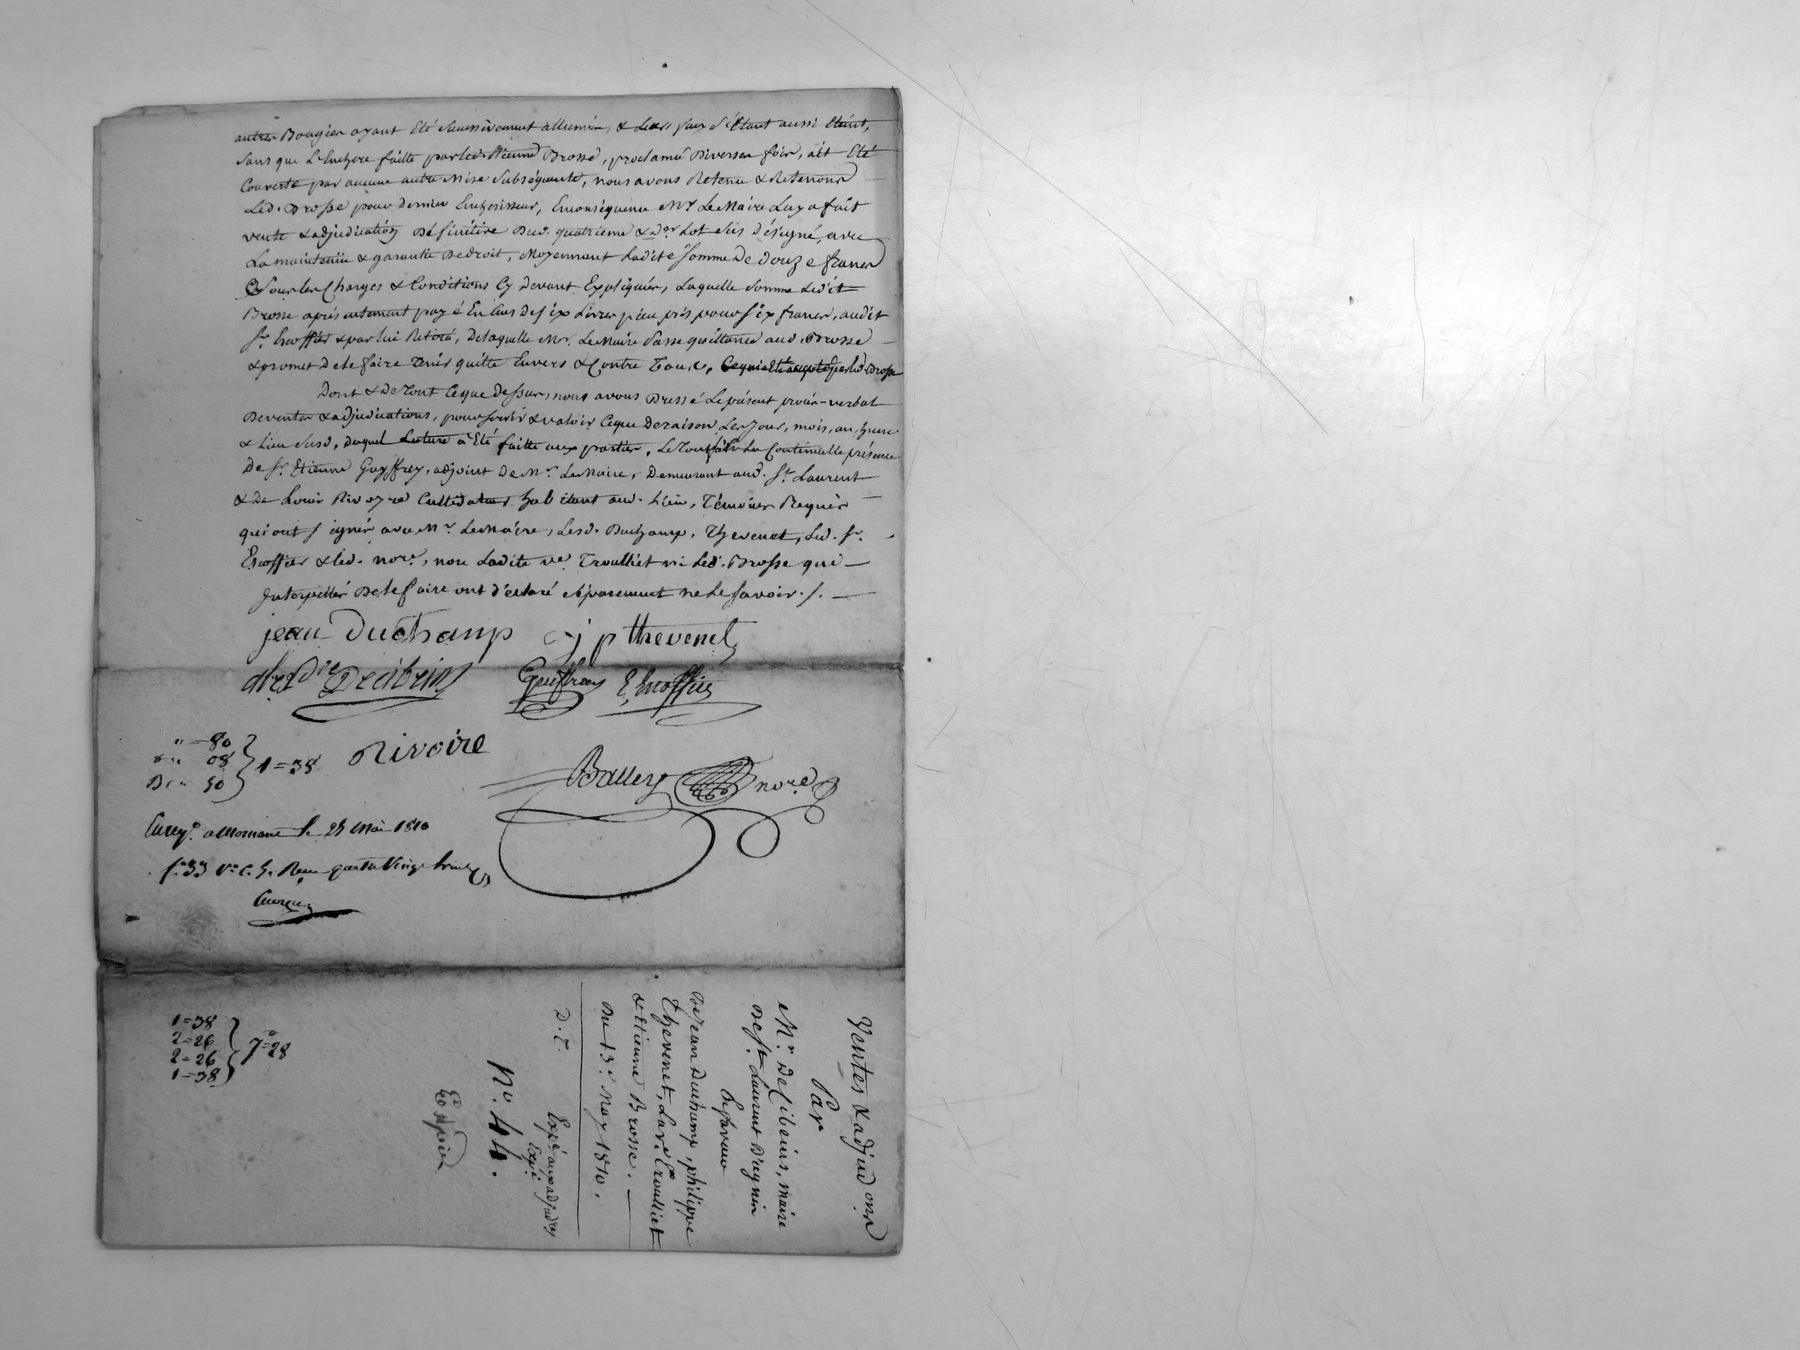 autres Bougies ayant Eté Successivement allumées, & Leurs feux S'Etant aussi Eteint,
Sans que L'Enchere faitte par led. Etienne Brosse, proclamée Diverses fois, ait Eté
Couverte par aucune autre Mise Subséquente, nous avons Retenu & Retenons
Led. Brosse pour dernier Encherisseur, Enconséquence Mr. Le Maire Luy a fait
vente & adjudication Définitive Dud. quatrieme & Der. Lot Sus Désigné, avec
La maintenüe & garantie De droit, Moyennant Ladite Somme De douze francs
& Sous Les Charges & Conditions Cy Devant Expliquées, Laquelle Somme Ledit
Brosse après payé En Ecus De six Livres pieces pris pour Six francs, audit
Sr. Escoffier & par lui Retiré, De laquelle Mr. Le Maire Passe quittance aud. Brosse
& promet De le faire Tenir quitte Envers & Contre Tous, Ce qui a Eté accepté par led. Brosse
Dont & De Tout Ce que Dessus, nous avons Dressé Le présent procès-verbal
De ventes & adjudications, pour servir & valoir Ce que De raison, Les Jour, mois, an, heure
& Lieu Susd, Duquel Lecture a Eté faitte aux parties, Le Tout fait En La Continuelle présence
De Sr. Etienne Guyffrey, adjoint De Mr. Le Maire, Demeurant aud. St. Laurent
& De Louis Rivoyre Cultivateur habitant aud. Lieu, Témoins Requis
qui ont Signés avec Mr. Le Maire, Lesd. Duchamp, Thevenet, Led. Sr.
Escoffier & led. nore., non Ladite ve. Troulliet ni Led. Brosse qui
Interpellés De le faire ont Déclaré Séparement ne Le Savoir ./.
jean Duchamp j p thevenet
Decibeins Guiffrey E Escoffier
" = 80
" 08
50
1=38
Rivoire
Ballery nore
Enreg. a Mornant le 25 Mai 1810
f. 33 Vo. C. 5. Reçu quatre Vingt
Ventes & adjudons
Par
Mr. Decibeins, maire
De St. Laurent D'agnin
En faveur
De Jean Duchamp, philippe
Thevenet, La ve. Troulliet
& Etienne Brosse.
Du 13e. May 1810.
D. T.
Expé. aux adjudres
No. 44.
1=38
2=26
2=26
1=38
7=28